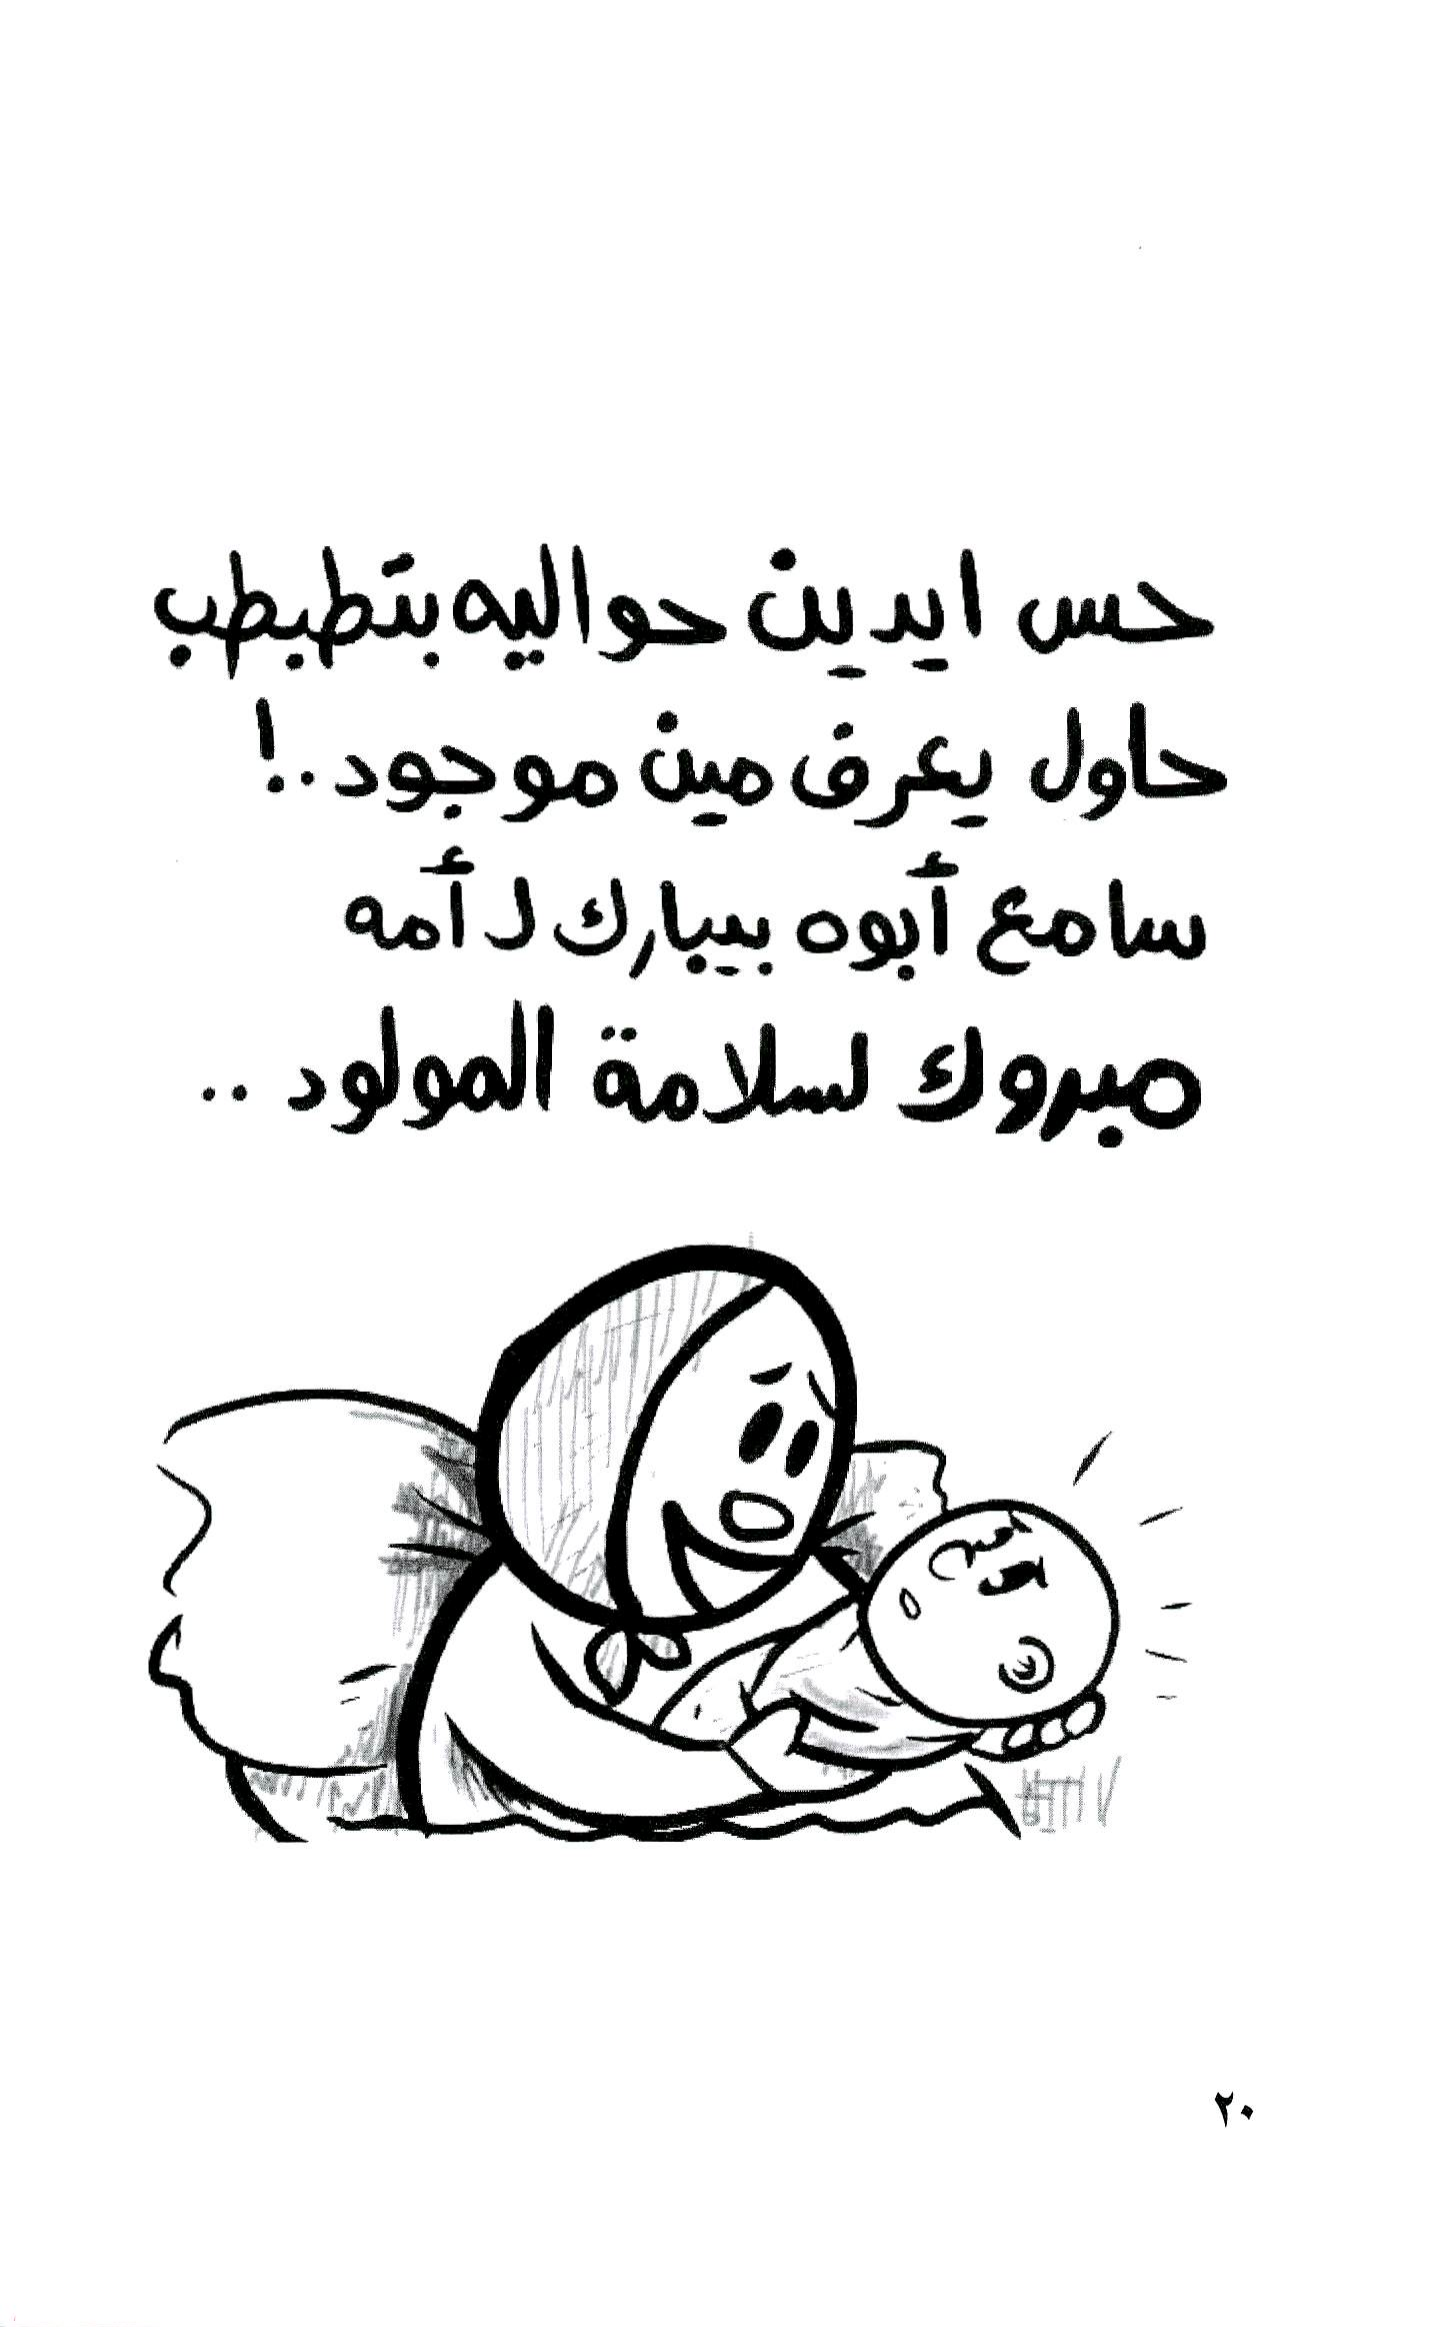 حس ايدين حواليه بتطبطب
حاول يعرف مين موجود..!
سامع أبوه بيبارك لـ أمه
مبروك لسلامة المولود ..
٢٠